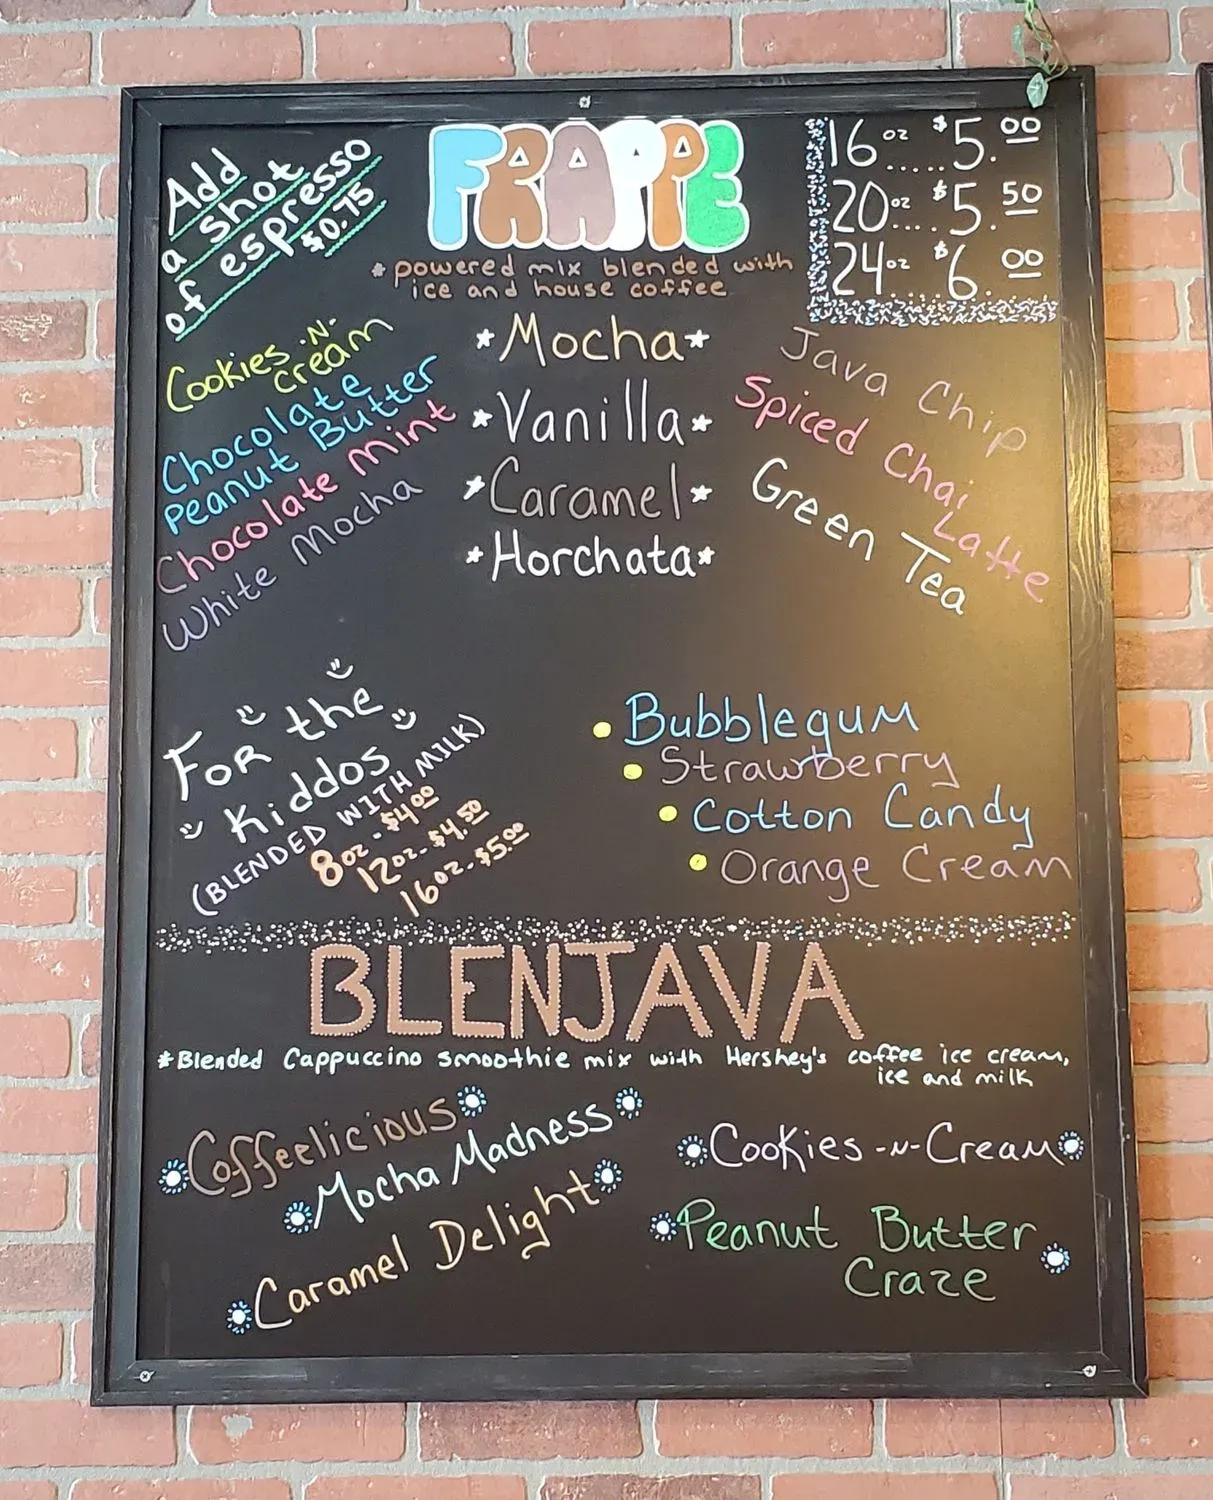 Add
a shot
of espresso
$0.75
FRAPPE
*powered mix blended with
ice and house coffee
16oz.....$5.00
20oz....$5.50
24oz $6.00
Cookies-N-
cream
Chocolate
Peanut Butter
Chocolate Mint
White Mocha
*Mocha*
*Vanilla*
*Caramel*
*Horchata*
Java Chip
Spiced Chai
Latte
Green Tea
For the
Kiddos
(BLENDED WITH MILK)
8oz-$4.00
12oz-$4.50
16oz-$5.00
• Bubblegum
• Strawberry
• Cotton Candy
• Orange Cream
BLENJAVA
*Blended Cappuccino smoothie mix with Hershey's coffee ice cream,
ice and milk
Coffeelicious
Mocha Madness
Caramel Delight
Cookies-N-Cream
Peanut Butter
Craze